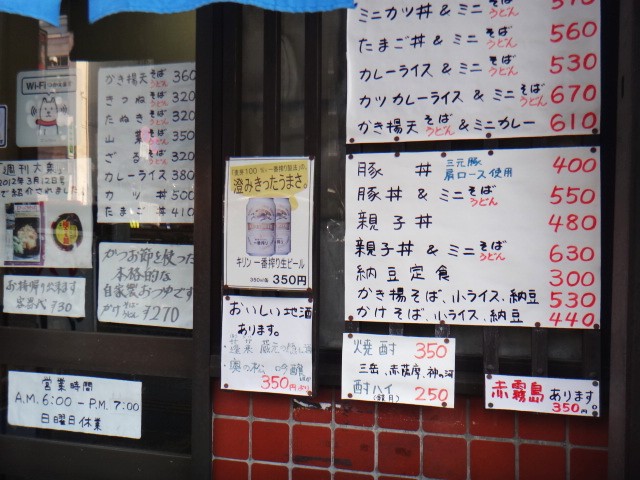 Wi-Fi
つかえます
週刊大衆
2012年3月12日号
で紹介されました
お持帰り出来ます
容器代 ¥30
かき揚天そばうどん 360
きつねそばうどん 320
たぬきそばうどん 320
山菜そばうどん 350
ざるそばうどん 320
カレーライス 380
カツ 500
たまご丼 410
かつお節を使った
本格的な
自家製おつゆです
かけそばうどん ¥270
営業時間
A.M. 6:00 - P.M. 7:00
日曜日休業
澄みきったうまさ。
キリン 一番搾り生ビール
350ml缶 350円
おいしい地酒
あります。
奥の松 吟醸
350円
ミニカツ丼 & ミニそばうどん
たまご丼 & ミニそばうどん 560
カレーライス & ミニそばうどん 530
カツカレーライス & ミニそばうどん 670
かき揚天そばうどん & ミニカレー 610
豚丼 三元豚 肩ロース使用 400
豚丼 & ミニそばうどん 550
親子丼 480
親子丼 & ミニそばうどん 630
納豆定食 300
かき揚そば、小ライス、納豆 530
かけそば、小ライス、納豆 440
焼酎 350
三岳、赤薩摩、神の河
酎ハイ 250
赤霧島 あります。
350円